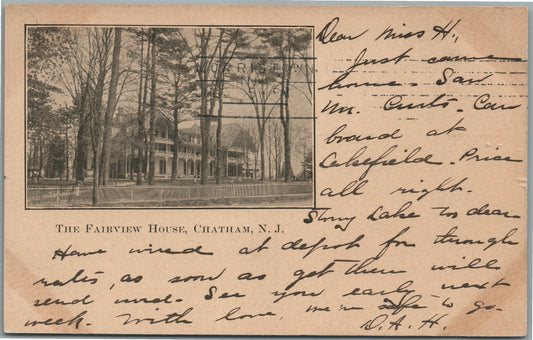 Dear Miss H.,
Just came
home. Saw
Mr. Curts. Can
board at
Lakefield. Price
all right.
Stony Lake too dear
THE FAIRVIEW HOUSE, CHATHAM, N. J.
Have wired at depot for through
rates, as soon as get them will
send word. See you early next
week. With love, we're safe to go.
D. A. H.